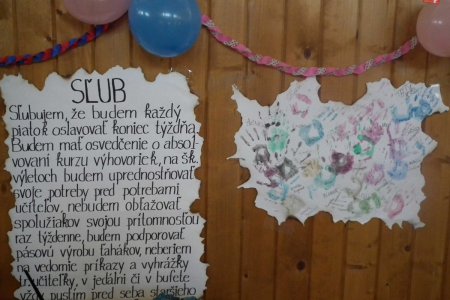 SĽUB
Sľubujem, že budem každý
piatok oslavovať koniec týždňa.
Budem mať osvedčenie o absol
vovaní kurzu výhovoriek, na šk.
výletoch budem uprednostňovať
svoje potreby pred potrebami
učiteľov, nebudem obťažovať
spolužiakov svojou prítomnosťou
raz týždenne, budem podporovať
pásovú výrobu ťahákov, neberiem
na vedomie príkazy a vyhrážky
učiteľky, v jedálni či v bufete
vždy pustím pred seba staršieho